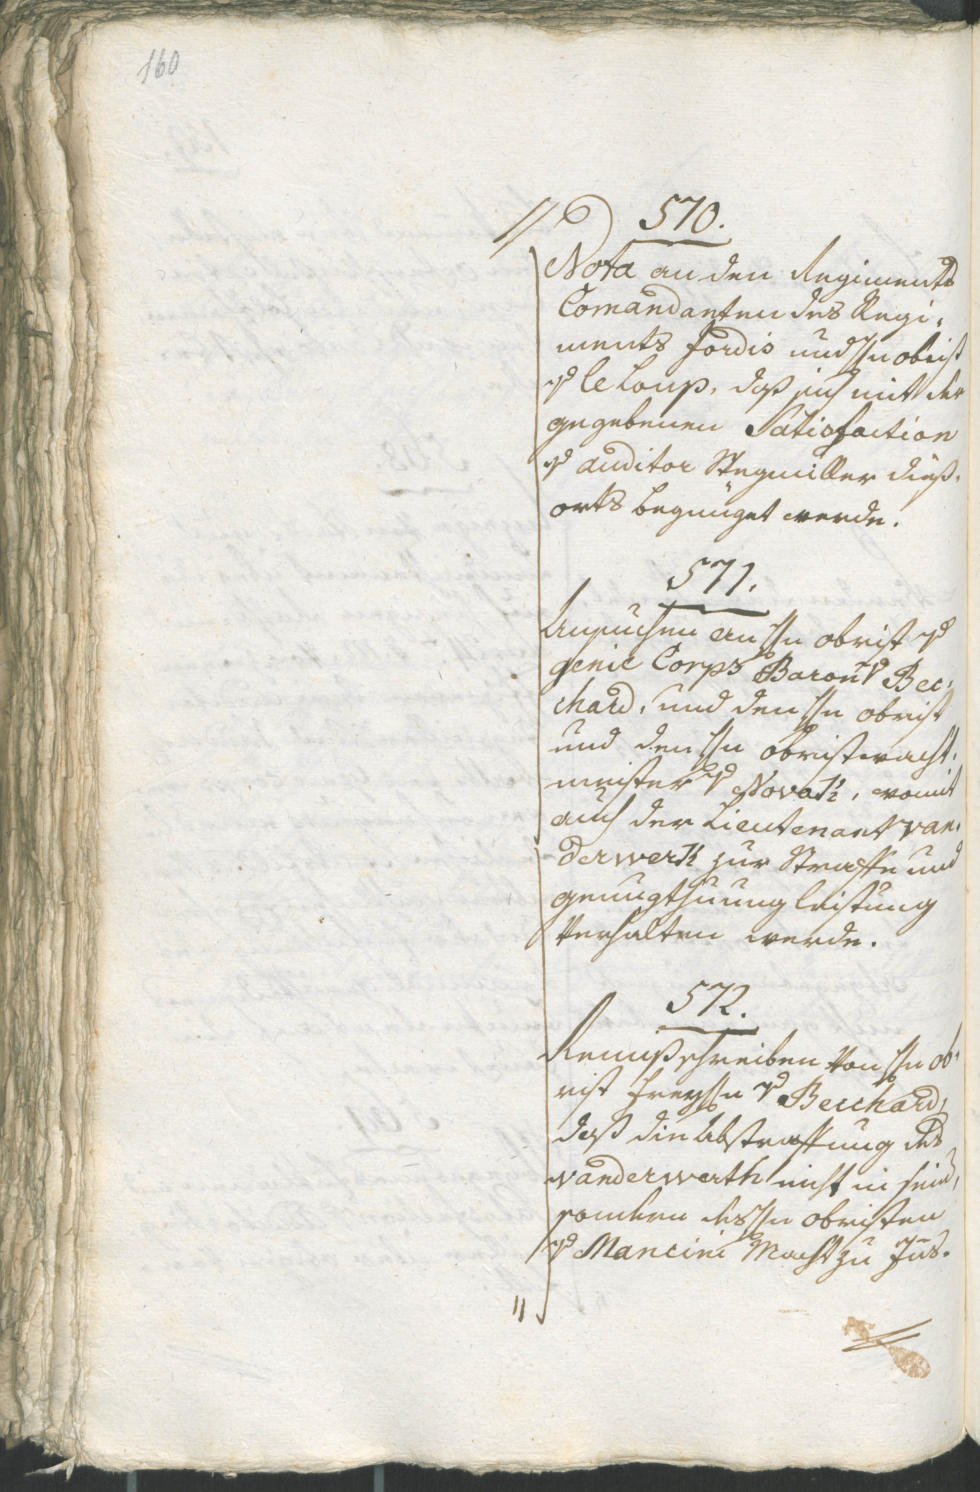 160
570.
Nota an den Regiments
Comandanten des Regi,
ments Jordis und H obrist
v le Loup, daß sich mit der
gegebenen Satisfaction
v auditor Stegmiller dieß,
orts begnüget werde.
571.
Ansuchen an H obrist v
genie Corps Baron v Bec,
chard, und den H obrist
und den H obristwacht,
meister v Novak, womit
auch der Lieutenant van,
derwerk zur Straffe und
genugthuung leistung
Verhalten werde.
572.
schreiben von H ob,
rist Freyh v Becchard,
daß die abstraffung des
vanderwerth nicht in sein,
sondern des H obristen
v Mancini Macht zu